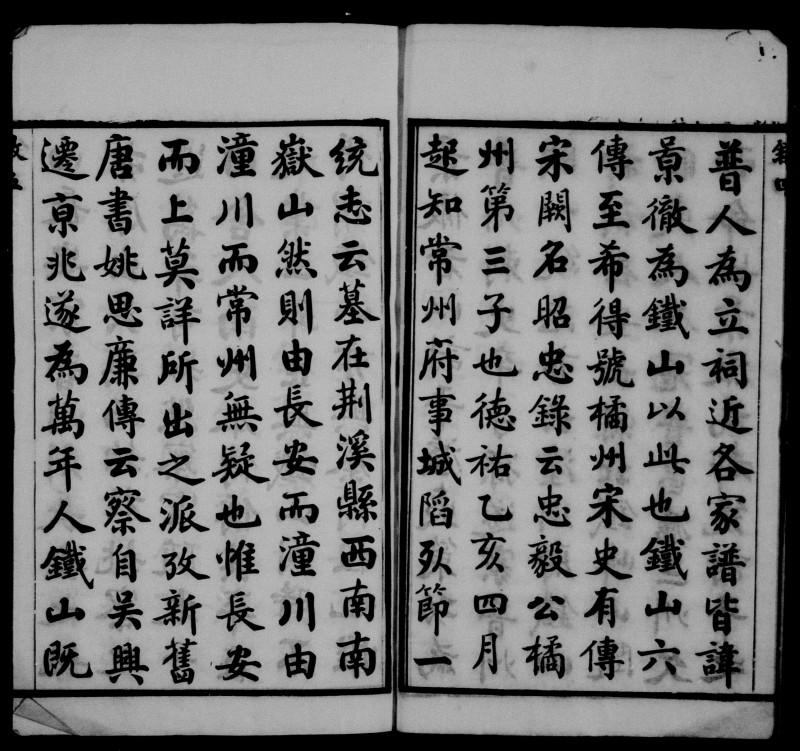 普人為立祠近各家譜皆諱
景徹為鐵山以此也鐵山六
傳至希得號橘州宋史有傳
宋闕名昭忠錄云忠毅公橘
州第三子也德祐乙亥四月
起知常州府事城陷死節一
統志云墓在荆溪縣西南南
嶽山然則由長安而潼川由
潼川而常州無疑也惟長安
而上莫詳所出之派攷新舊
唐書姚思廉傳云察自吳興
遷京兆遂為萬年人鐵山既